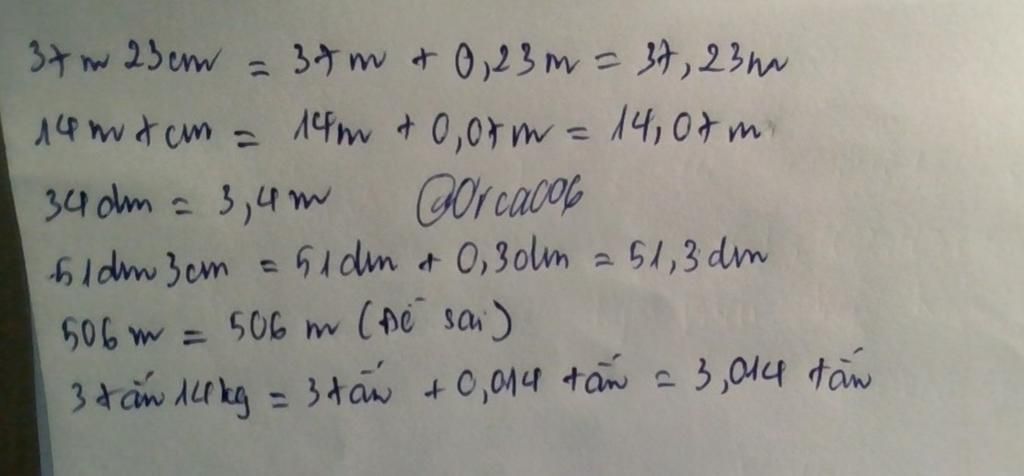 37m 23cm = 37m + 0,23m = 37,23m
14m 7cm = 14m + 0,07m = 14,07m
34dm = 3,4m @Orcac06
51dm 3cm = 51dm + 0,3dm = 51,3dm
506m = 506m (Đề sai)
3 tấn 14kg = 3 tấn + 0,014 tấn = 3,014 tấn